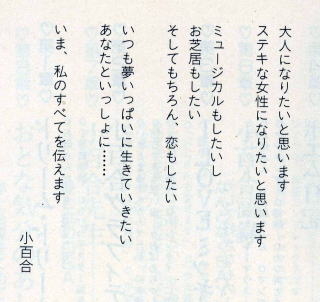 大人になりたいと思います
ステキな女性になりたいと思います
ミュージカルもしたいし
お芝居もしたい
そしてもちろん、恋もしたい
いつも夢いっぱいに生きていきたい
あなたといっしょに……
いま、私のすべてを伝えます
小百合